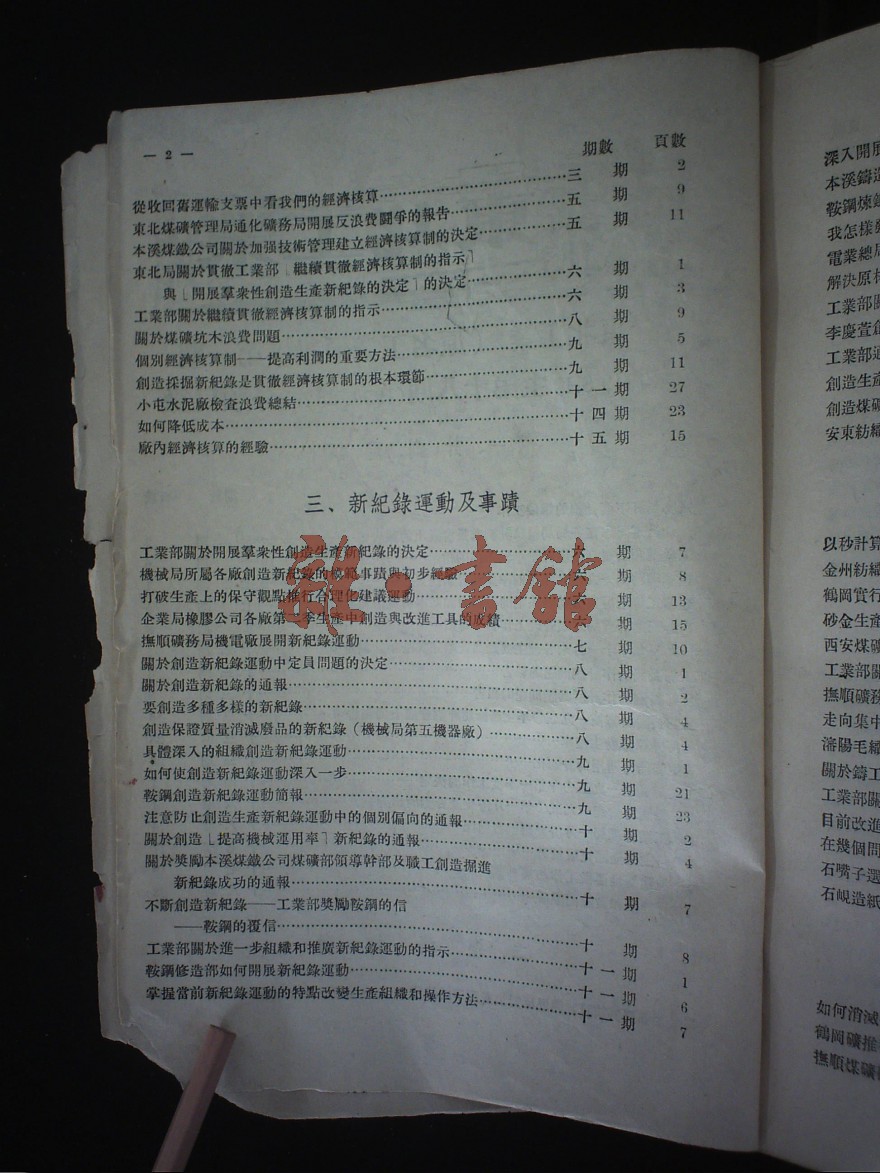 — 2 —
期數 頁數
從收回舊運輸支票中看我們的經濟核算……三 期 2
東北煤礦管理局通化礦務局開展反浪費鬪爭的報告……五 期 9
本溪煤鐵公司關於加强技術管理建立經濟核算制的決定……五 期 11
東北局關於貫徹工業部「繼續貫徹經濟核算制的指示」
與「開展羣衆性創造生產新紀錄的決定」的決定……六 期 1
工業部關於繼續貫徹經濟核算制的指示……六 期 3
關於煤礦坑木浪費問題……八 期 9
個別經濟核算制——提高利潤的重要方法……九 期 5
創造採掘新紀錄是貫徹經濟核算制的根本環節……九 期 11
小屯水泥廠檢查浪費總結……十一期 27
如何降低成本……十四期 23
廠內經濟核算的經驗……十五期 15
三、新紀錄運動及事蹟
工業部關於開展羣衆性創造生產新紀錄的決定……六 期 7
機械局所屬各廠創造新紀錄的模範事蹟與初步經驗……六 期 8
打破生產上的保守觀點推行合理化建議運動……六 期 13
企業局橡膠公司各廠第二季生產中創造與改進工具的成績……六 期 15
撫順礦務局機電廠展開新紀錄運動……七 期 10
關於創造新紀錄運動中定員問題的決定……八 期 1
關於創造新紀錄的通報……八 期 2
要創造多種多樣的新紀錄……八 期 4
創造保證質量消滅廢品的新紀錄（機械局第五機器廠）……八 期 4
具體深入的組織創造新紀錄運動……九 期 1
如何使創造新紀錄運動深入一步……九 期 21
鞍鋼創造新紀錄運動簡報……九 期 23
注意防止創造生產新紀錄運動中的個別偏向的通報……十 期 2
關於創造「提高機械運用率」新紀錄的通報……十 期 4
關於獎勵本溪煤鐵公司煤礦部領導幹部及職工創造掘進
新紀錄成功的通報……十 期 7
不斷創造新紀錄——工業部獎勵鞍鋼的信
——鞍鋼的覆信……十 期 8
工業部關於進一步組織和推廣新紀錄運動的指示……十一期 1
鞍鋼修造部如何開展新紀錄運動……十一期 6
掌握當前新紀錄運動的特點改變生產組織和操作方法……十一期 7
雜·書館
深入開展
本溪鑄造
鞍鋼煉鋼
我怎樣
電業總局
解決原材
工業部
李慶萱創
工業部通
創造生產
創造煤礦
安東紡織
以砂計算
金州紡織
鶴岡實行
砂金生產
西安煤礦
工業部關
撫順礦務
走向集中
瀋陽毛織
關於鑄工
工業部關
目前改進
在幾個問
石嘴子選
石峴造紙
如何消滅
鶴岡礦推
撫順煤礦